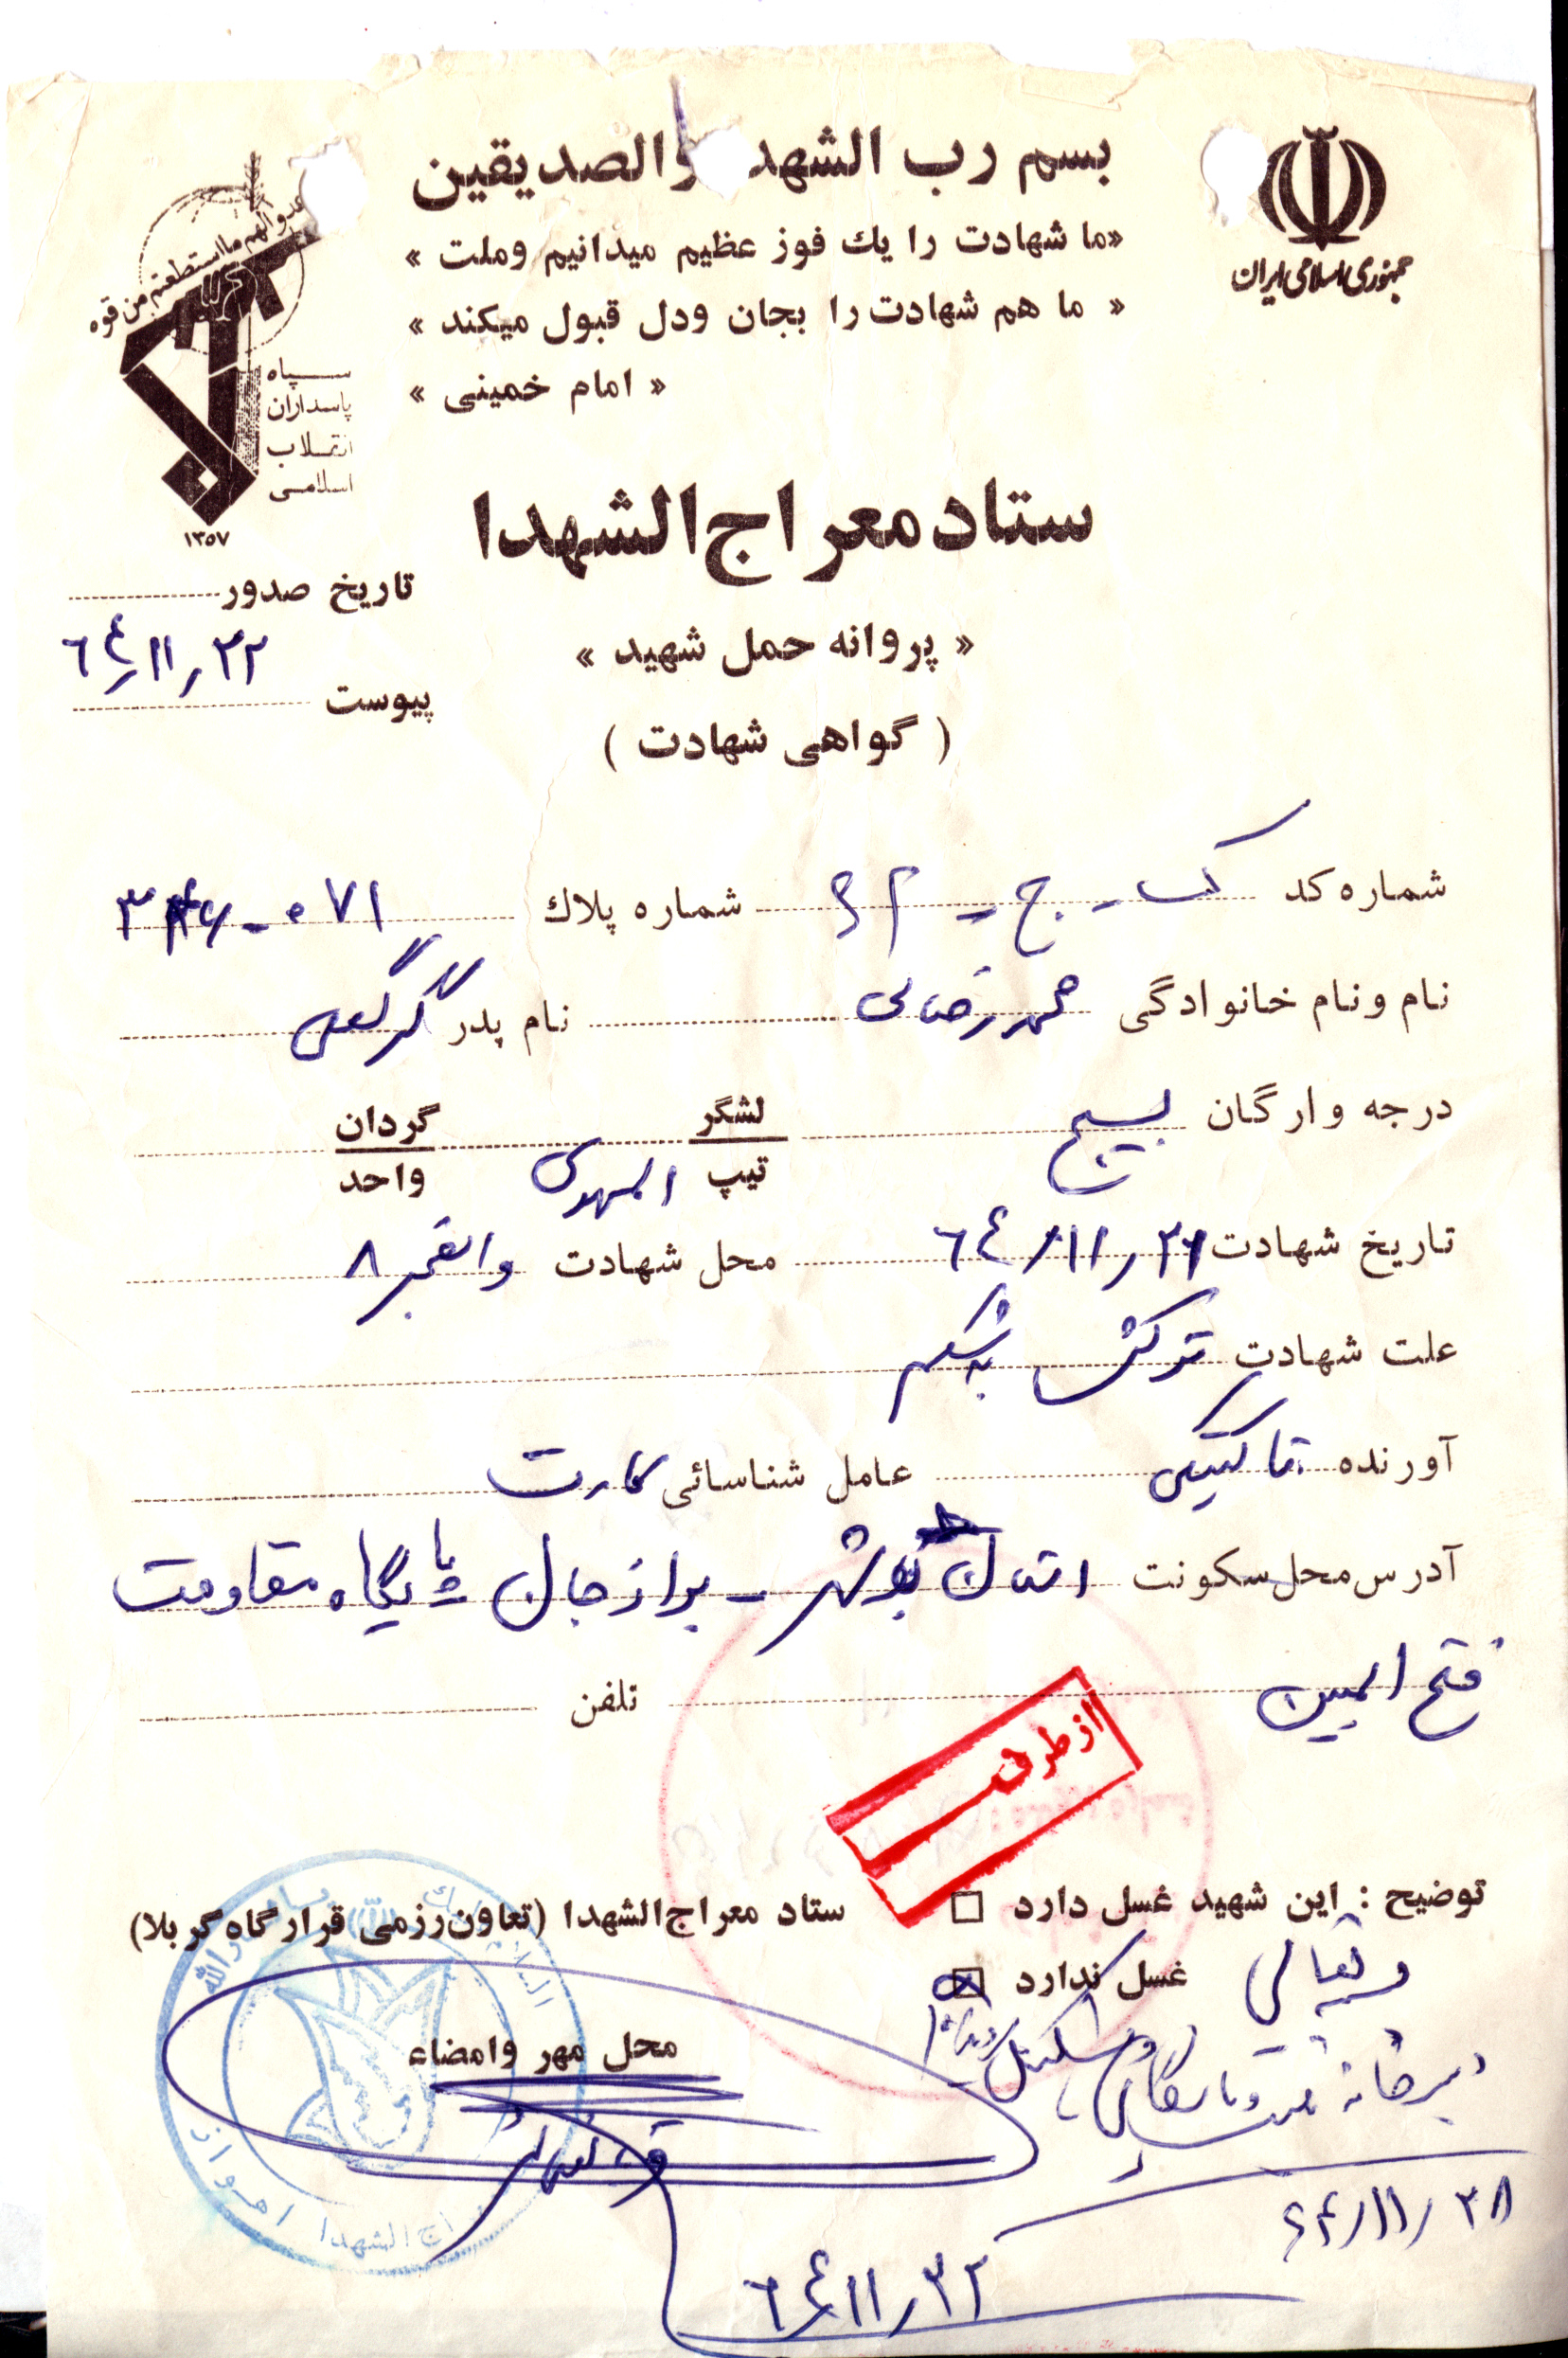 بسم رب الشهد والصدیقین
جمهوری اسلامی ایران
«ما شهادت را یك فوز عظیم میدانیم وملت »
« ما هم شهادت را بجان ودل قبول میکند »
« امام خمینی »
عدوالهم مااستطعتم من قوه
سپاه
پاسداران
انقلاب
اسلامی
۱۳۵۷
ستاد معراج الشهدا
تاریخ صدور
٦٤٫۱۱٫۲۲
« پروانه حمل شهید »
پیوست
( گواهی شهادت )
شماره کد ک - ج - شماره پلاك ۰۷۱
نام ونام خانوادگی محمد رضائی نام پدر گرگعلی
درجه وارگان بسیج لشگر تیپ المهدی گردان واحد
تاریخ شهادت ٦٤/۱۱٫۲۱ محل شهادت والفجر ۸
علت شهادت ترکش به شکم
آورنده عامل شناسائی کارت
آدرس محل سکونت استان بوشهر - برازجان پایگاه مقاومت
فتح المبین تلفن
از طرف
توضیح : این شهید غسل دارد □ ستاد معراج الشهدا (تعاون رزمی قرارگاه کربلا)
غسل ندارد
بسمه تعالی
محل مهر وامضاء
دبیرخانه
۶۴/۱۱/۲۸
٦٤٫۱۱٫۲۲
اج الشهدا اهواز